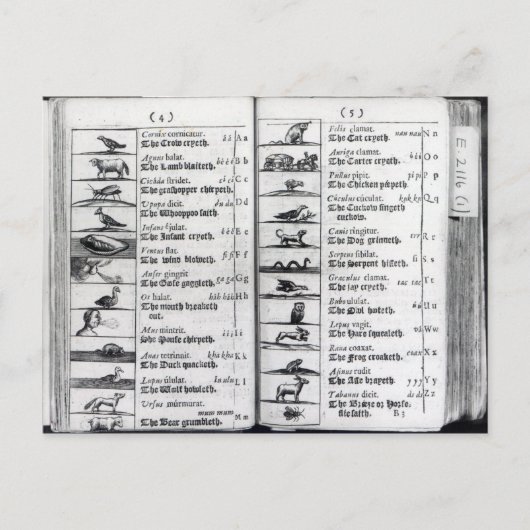 (4)
Cornix cornicatur. á á A a
The Crow cryeth.
Agnus balat. bé é é B b
The Lamb blaiteth.
Cicàda stridet. cì cì C c
The grashopper chirpeth.
Upupa dicit. du du D d
The Whooppoo saith.
Infans éjulat. é é é E e
The Infant cryeth.
Ventus flat. fi fi F f
The wind bloweth.
Anser gingrit. ga ga G g
The Goose gaggleth.
Os halat. háh háh H h
The mouth breatheth
out.
Mus mintrit. í í í I i
The Mouse chirpeth.
Anas tetrinnit. kha kha K k
The Duck quacketh.
Lupus úlulat. lu ulu L l
The Wolf howleth.
Ursus múrmurat.
mum mum M m
The Bear grumbleth.
(5)
Felis clamat. nau nau N n
The Cat cryeth.
Auriga clamat. ò ò ò O o
The Carter cryeth.
Pullus pipit. pi pi P p
The Chicken pipeth.
Cúculus cúculat. kuk ku Q q
The Cuckow singeth
cuckow.
Canis ringitur. err R r
The Dog grinneth.
Serpens sibilat. si S s
The Serpent hisseth.
Graculus clamat. tac tac T t
The Jay cryeth.
Bubo ululat. ù ù U u
The Owl hooteth.
Lepus vagit. va W w
The Hare squeaketh.
Rana coaxat. coax X x
The Frog croaketh.
Asinus rudit. y y y Y y
The Asse brayeth.
Tabanus dicit. ds ds Z z
The Breeze or Horse-
flie saith. B 3
E. 2116 (1)